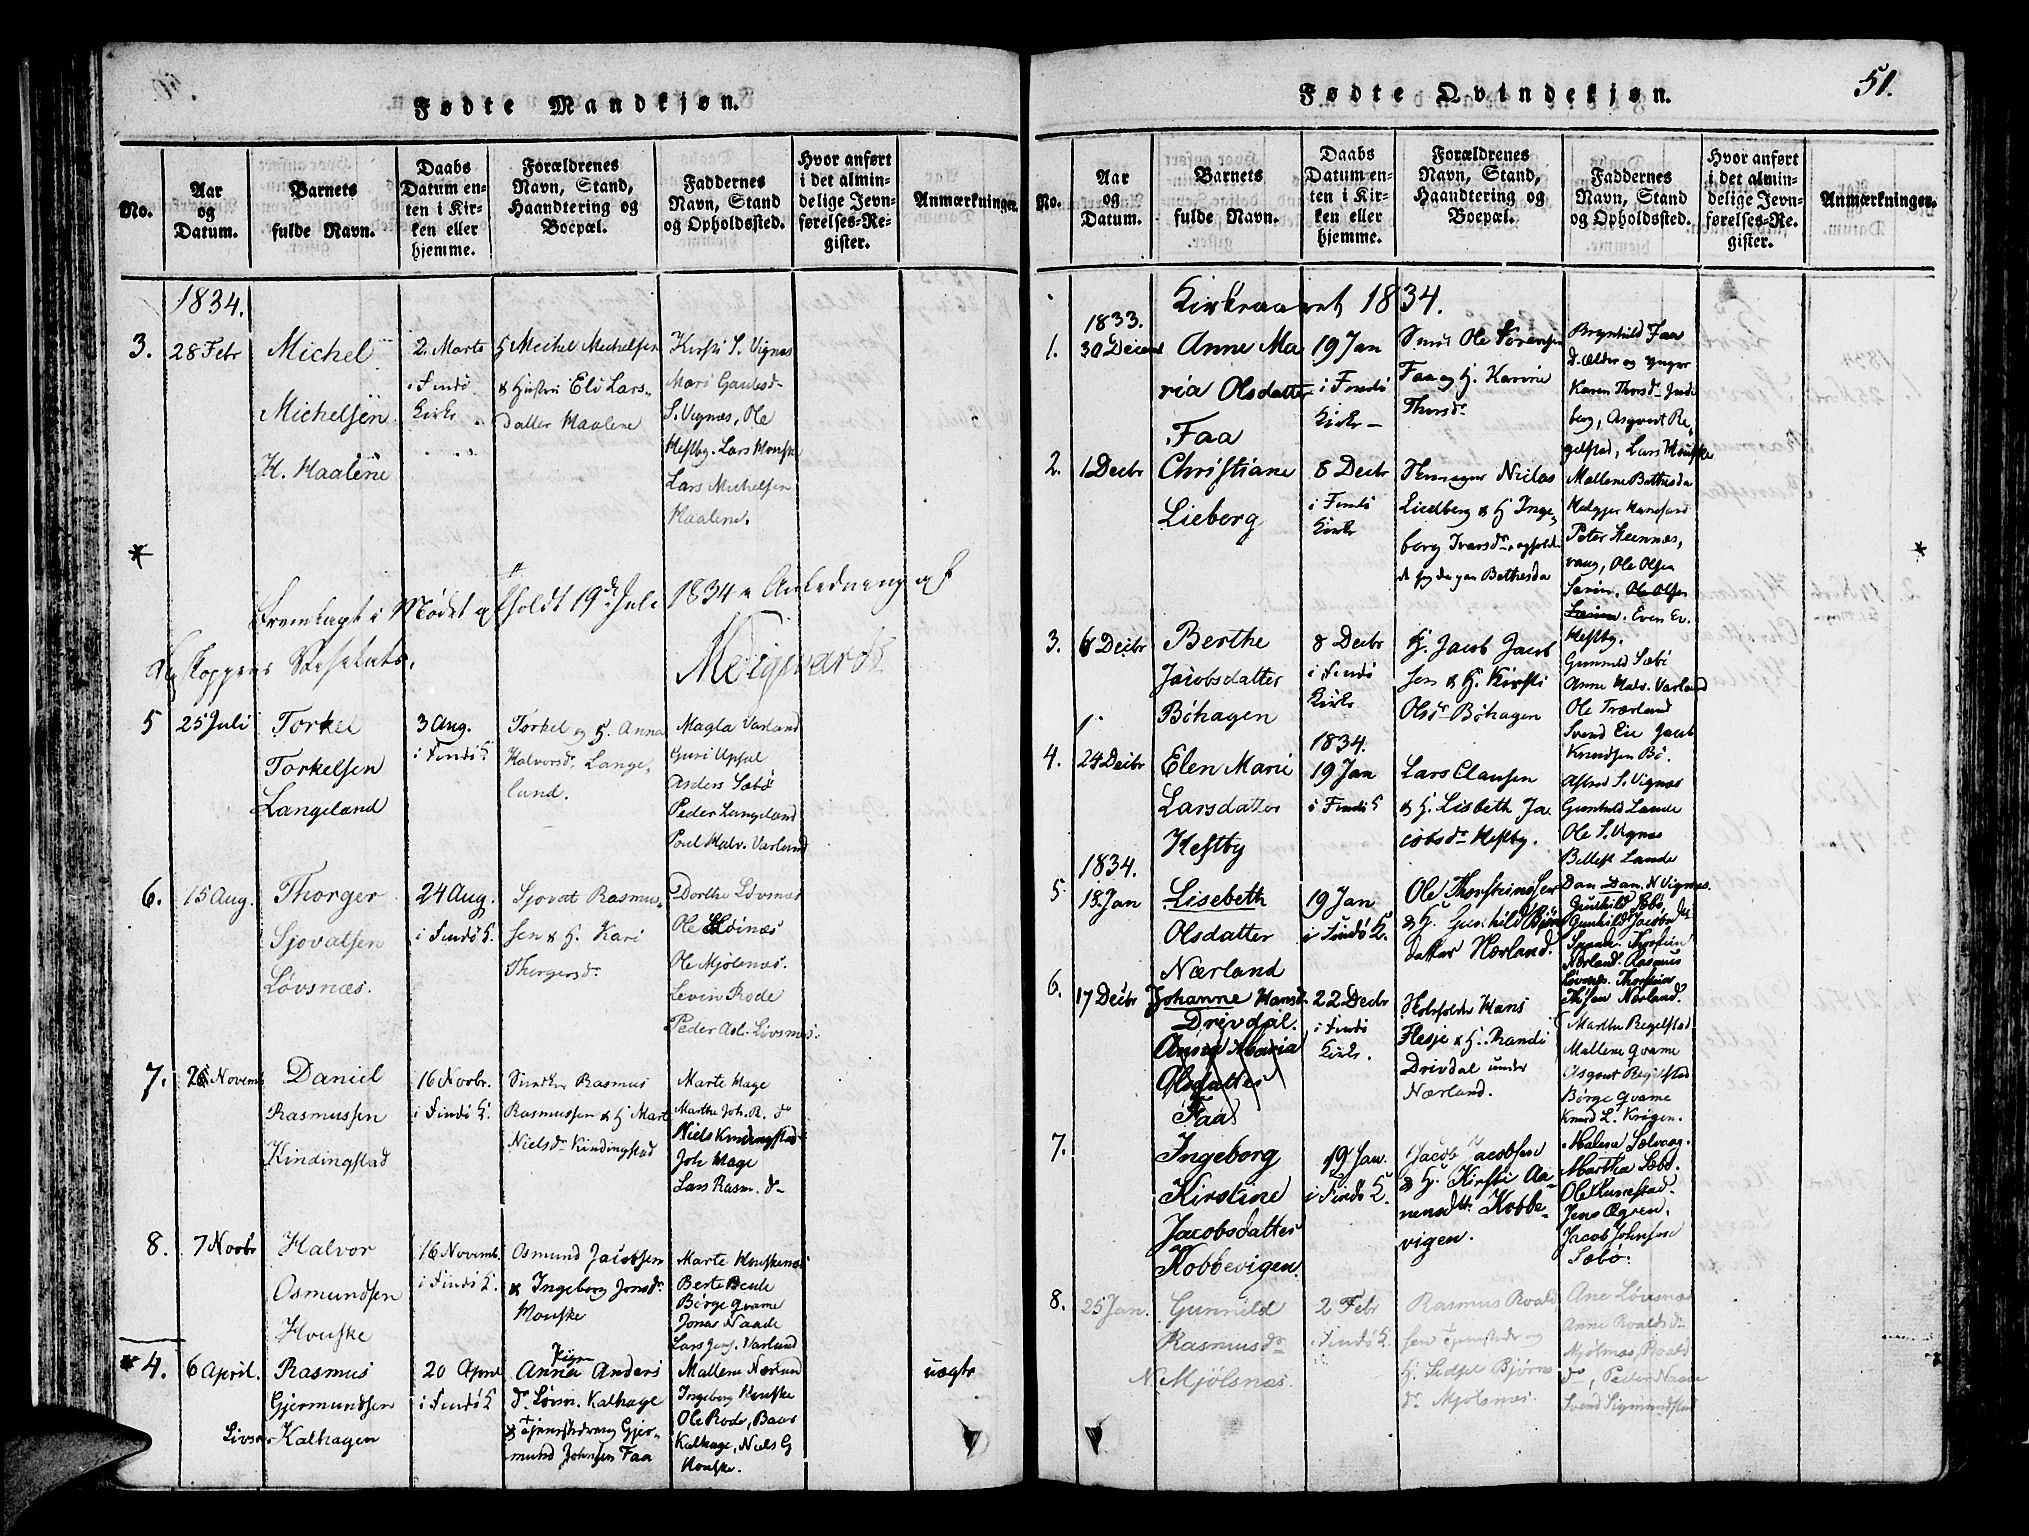 Fødte Mandkjøn.
No.
Aar
og
Datum.
Barnets
fulde Navn.
Daabs
Datum en-
ten i Kir-
ken eller
hjemme.
Forældrenes
Navn, Stand,
Haandtering og
Boepæl.
Faddernes
Navn, Stand
og Opholdssted.
Hvor anført
i det almin-
delige Jevn-
førelses-Re-
gister.
Anmærkninger.
1834.
3.
28 Febr
Michel
Michelsen
H. Haalene
2. Marts
i Findö
Kirke
G Michel Michelsen
& Hustru Eli Lars-
Datter Haalene
Kirsti S. Vignæs
Mari Gautesd
S. Vignæs, Ole
Hestby. Lars Houske
Lars Michelsen
Haalene.
*
Fremlagt i Mødet afholdt 19de Juli 1834 i Anledning af
5
25 Juli
Torkel
Torkelsen
Langeland
3 Aug.
i Findö K.
Torkel og H. Anna
Halvorsdr Lange-
lund.
Magla Varland
Guri Upsal
Asders Sæbö
Peder Langeland
Poul Halv. Varland
6.
15 Aug.
Thorger
Sjovatsen
Løvsnæs.
24 Aug.
i Findö K.
Sjovat Rasmus-
sen & H. Kari
Thorgersdr
Dorthe Lövsnæs
Ole
Ole Mjölsnæs.
Levin Rode
7.
Novemb
Daniel
Rasmussen
Kindingstad
16 Novbr.
i Findö K.
Rasmus
Rasmussen & H Marte
Nielsdr Kindingstad
Marte Hage
Marthe Joh. R. d
Niels Kindingstad
Joh Hage
Lars Rasm. d
8.
7 Novbr
Halvor
Osmundsen
Houske
16 Novemb.
i Findö K.
Osmund Jacobsen
& Ingeborg Jonsdr
Houske
Marte Houskenæs
Berte Beule
Börge Qvame
Jonas Naade
Lars Jens. Varland
*4.
6 April.
Rasmus
Gjermundsen
Kalhagen
20 April
i Findö K
Pigen
Anna Anders
dr Lövsn. Kalhage
& Tjenestedreng Gjer-
mund Johnsen Faa
Mallene Nærland
Ingeborg Houske
Ole Rode, Baar
Kalhage, Niels G
Houske.
uægte
Fødte Qvindekjøn.
51.
No.
Aar
og
Datum.
Barnets
fulde Navn.
Daabs
Datum en-
ten i Kir-
ken eller
hjemme.
Forældrenes
Navn, Stand,
Haandtering og
Boepæl.
Faddernes
Navn, Stand
og Opholdssted.
Hvor anført
i det almin-
delige Jevn-
førelses-Re-
gister.
Anmærkninger.
Kirkeaaret 1834.
1833.
1.
30 Decemb
Anne Ma
ria Olsdatter
Faa
19 Jan
i Findö
Kirke
Ole Sörensen
Faa og H. Karine
Thorsdr
Brynhild Faa
d. Ælder og Ynger
Karen Thorsd. Jude
berg, Asgout Re-
gelstad, Lars Houske
2.
1 Decbr
Christiane
Lieberg
8 Decbr
i Findö
Kirke
Niclas
Liedberg & H Inge-
borg Ivarsdr
Bethesda
Mallene Bethesda
Peter Steinnæs,
Ole Olsen
Ole Olsen
Even Ev.
Hestby.
*
3.
6 Decbr
Berthe
Jacobsdatter
Böhagen
8 Decbr
i Findö
Kirke
G. Jacob Jacob
sen & H. Kirsti
Olsdr Böhagen
Gunnild Sæbö
Anne Halv. Varland
Ole Trærland
Svend Eie Jacob
Knudsen Bö.
4.
24 Decbr
Elen Marie
Larsdatter
Hestby
1834.
19 Jan
i Findö K
Lars Clausen
& H. Lisbeth Ja
cobsdr Hestby.
S. Vignæs
Gunhild Lande
Ole S. Vignæs
Lande
Dan Dan. N Vignæs.
1834.
5
18 Jan
Lisebeth
Olsdatter
Nærland
19 Jan
i Findö K.
Ole Thorsteinssen
& H. Gunhild Björns
datter Nærland.
Gunhild Sæbö
Gunhild Jacobsdt
Thorstein
Nærland. Rasmus
Lövsnæs. Thorstein
Nærland.
6.
17 Decbr
Johanne Hansd.
Drivdal.
Anne Maria
Olsdatter
Faa
22 Decbr
i Findö
Kirke.
Hans
Hesje & H. Randi
Drivdal under
Nærland.
Marthe Regelstad
Mallene Qvame
Asgout Regelstad
Börge Qvame
Knud L. Krögen.
7.
Ingeborg
Kirstine
Jacobsdatter
Kobbevigen.
19 Jan.
i Findö K.
Jacob Jacobsen
& H. Kirsti Aa-
nensdtr. Kobbe-
vigen.
Malene Sælvaag.
Marthea Sæbö.
Ole Runestad.
Jens
Jacob Johnsen
Sæbö.
8.
25 Jan.
Gunnild
Rasmusdr
N Mjölsnæs.
2 Febr
i Findö K
Rasmus Roald
sen
H. Sidsel Björns
dr Mjölsnæs.
Ane Lövsnæs
Anne Roaldsdr
Mjölsnæs, Roald
do, Peder Naade
Svend Sigmundstad